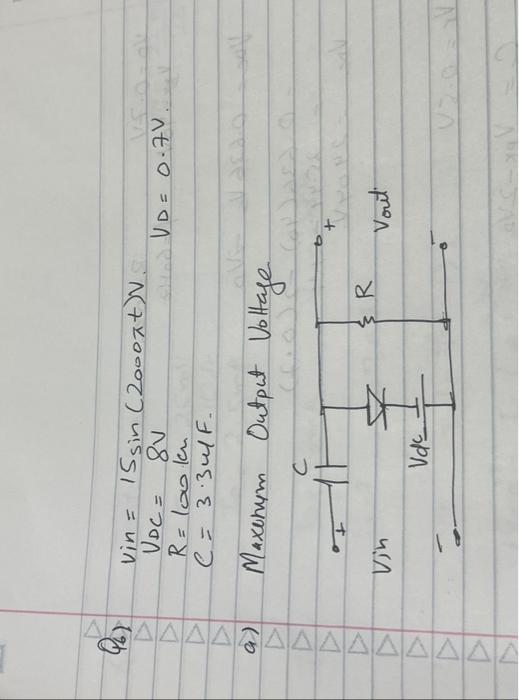 Q6)
Vin = 15 sin (2000πt)V.
VDC = 8V
R = 100 kΩ VD = 0.7V.
C = 3.3 uF.
a) Maxemum Output Voltage
C
+ +
Vin Vdc R Vout
- -